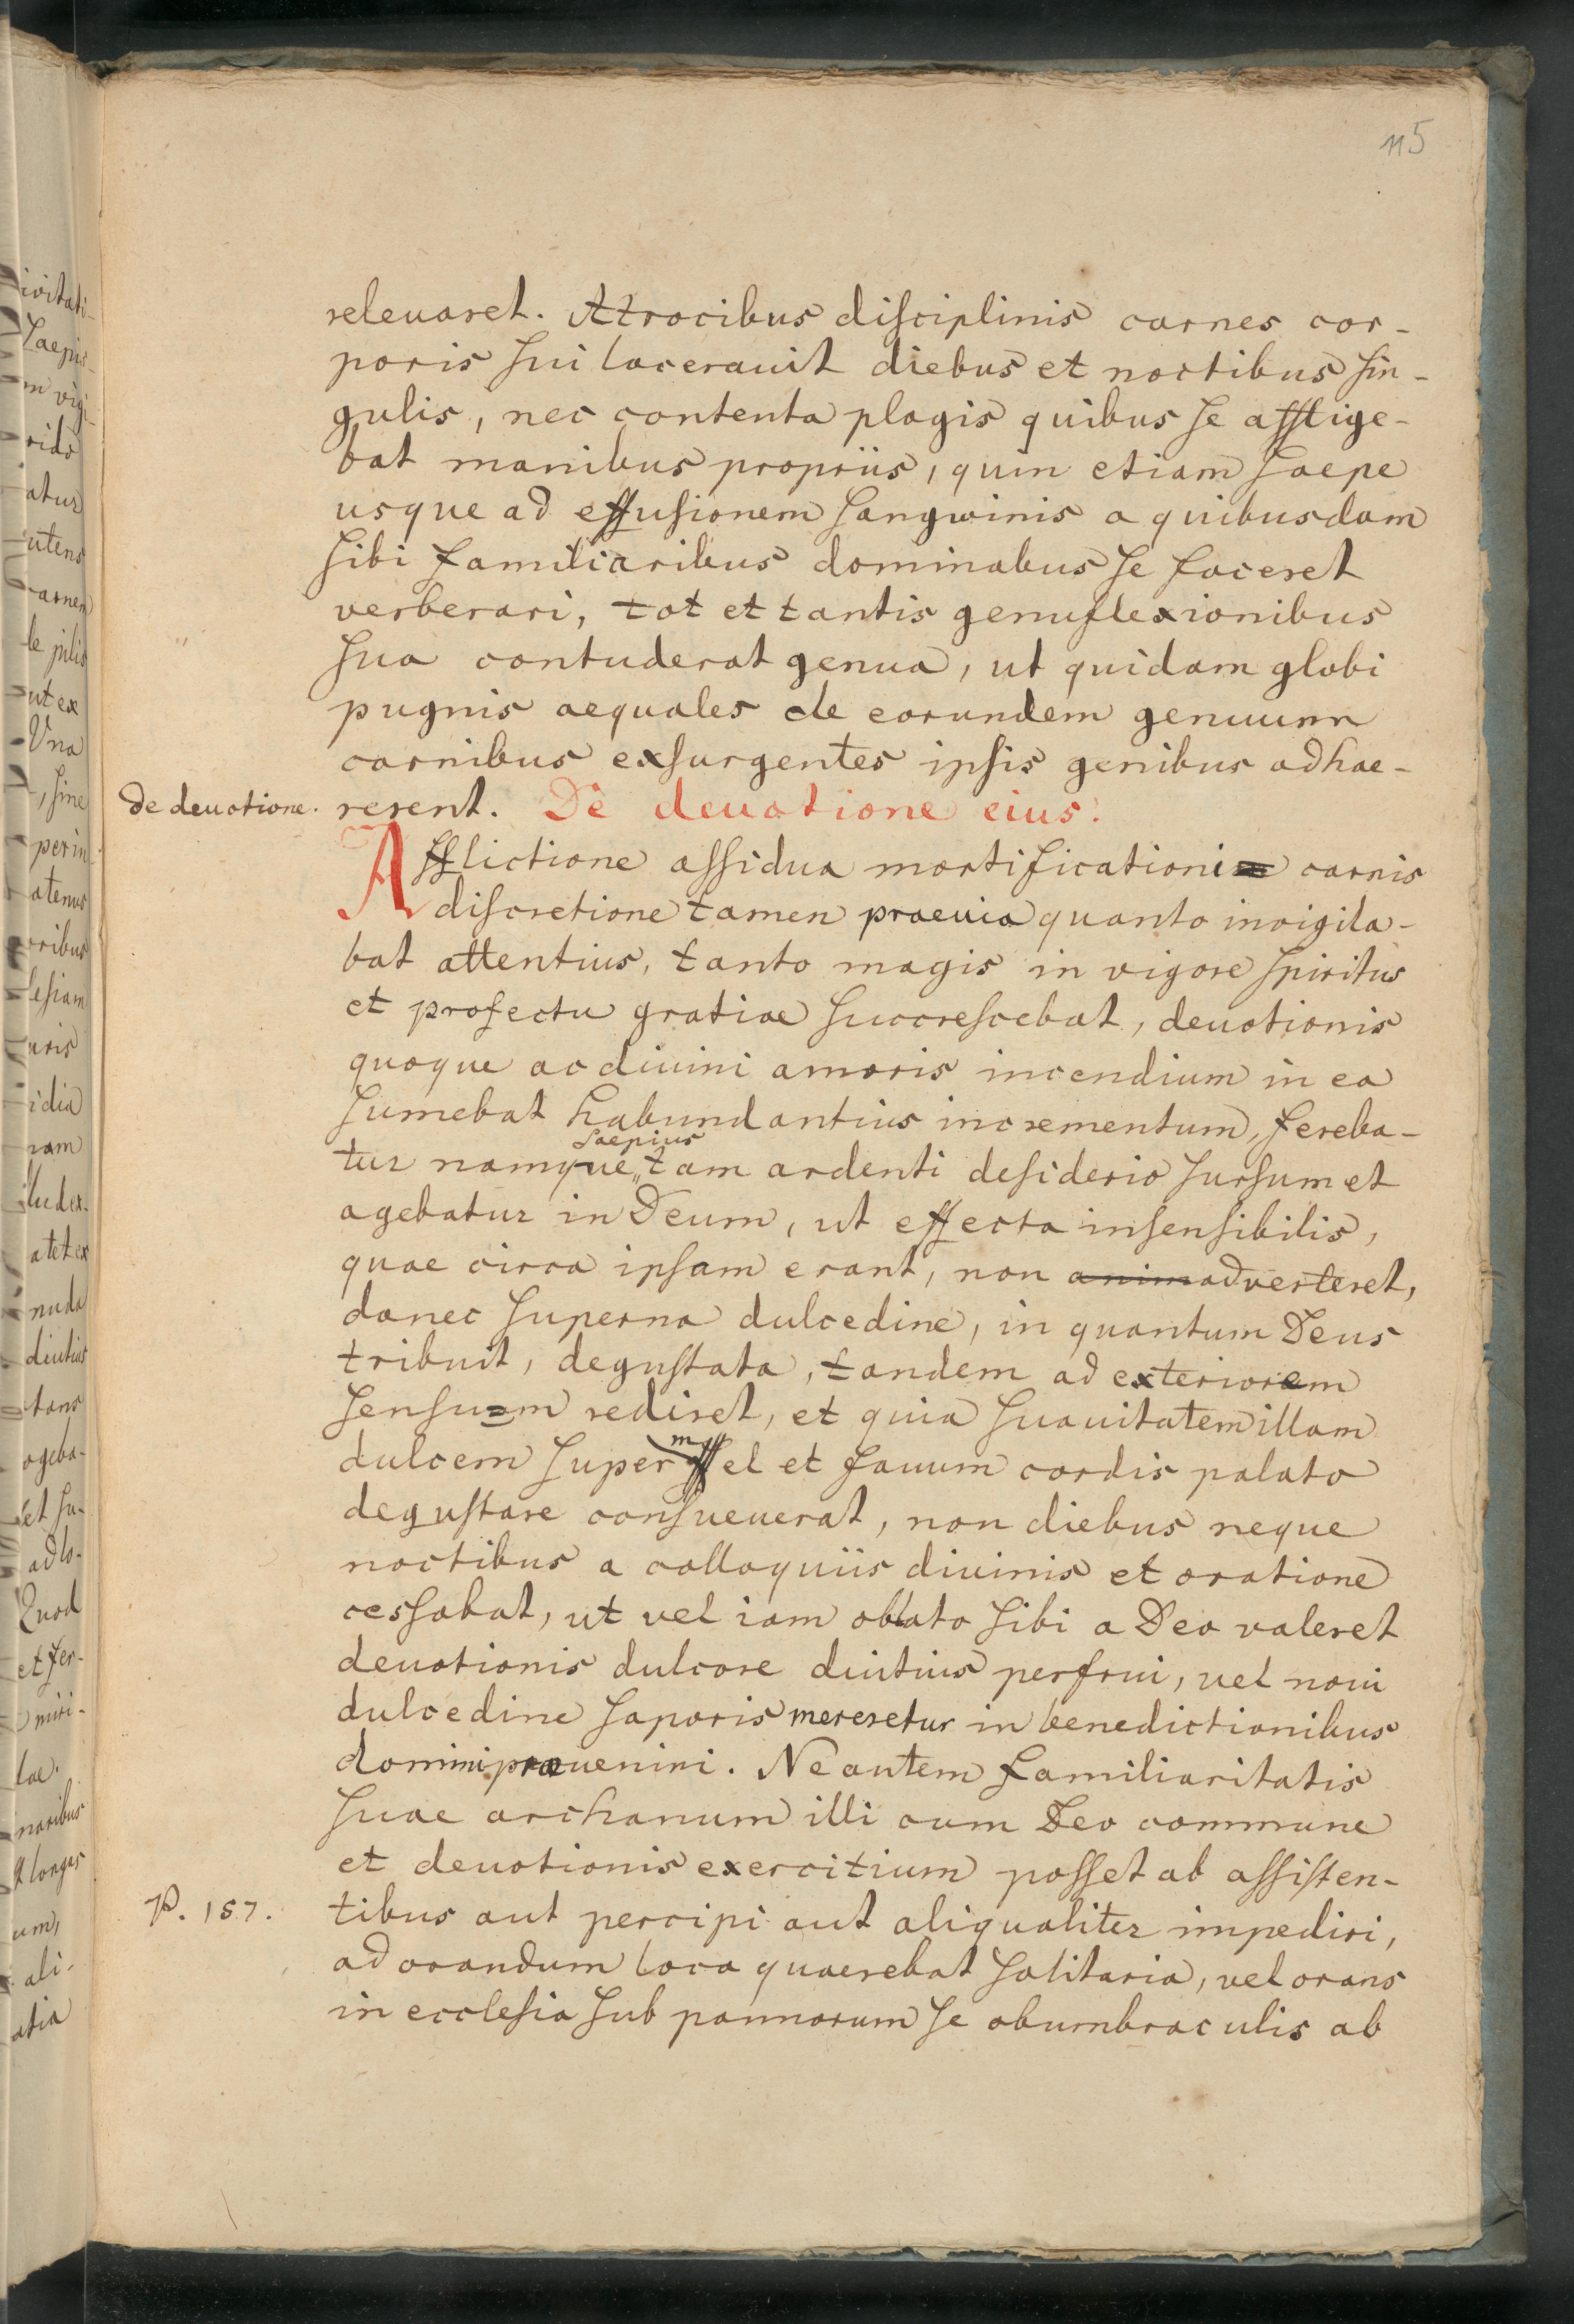 115
releuaret. Atrocibus disciplinis carnes cor-
poris sui lacerauit diebus et noctibus sin-
gulis, nec contenta plagis quibus se afflige-
bat manibus propriis, quin etiam saepe
usque ad effusionem sangwinis a quibusdam
sibi familiaribus dominabus se faceret
verberari, tot et tantis genuflexionibus
sua contuderat genua, ut quidam globi
pugnis aequales de eorundem genuum
carnibus exsurgentes ipsis genibus adhae-
de deuotione.
rerent. De deuotione eius.
Afflictione assidua mortificationi carnis
discretione tamen praeuia quanto invigila-
bat attentius, tanto magis in vigore spiritus
et profectu gratiae succrescebat, deuotionis
quoque ac diuini amoris incendium in ea
sumebat habundantius incrementum, fereba-
saepius
tur namque tam ardenti desiderio sursum et
agebatur in Deum, ut effecta insensibilis,
quae circa ipsam erant, non animadverteret,
donec superna dulcedine, in quantum Deus
tribuit, degustata, tandem ad exteriorem
sensum rediret, et quia suauitatem illam
dulcem super mel et fauum cordis palato
degustare consueuerat, non diebus neque
noctibus a colloquiis diuinis et oratione
cessabat, ut vel iam oblato sibi a Deo valeret
deuotionis dulcore diutius perfrui, vel noui
dulcedine saporis mereretur in benedictionibus
domini praeueniri. Ne autem familiaritatis
suae archanum illi cum Deo commune
et deuotionis exercitium posset ab assisten-
P. 157.
tibus aut percipi aut aliqualiter impediri,
ad orandum loca quaerebat solitaria, vel orans
in ecclesia sub pannorum se obumbraculis ab